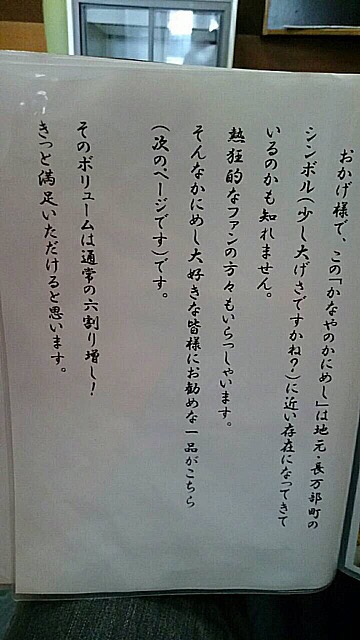 おかげ様で、この「かなやのかにめし」は地元・長万部町の
シンボル(少し大げさですかね?)に近い存在になってきて
いるのかも知れません。
熱狂的なファンの方々もいらっしゃいます。
そんなかにめし大好きな皆様にお勧めな一品がこちら
(次のページです)です。
そのボリュームは通常の六割り増し!
きっと満足いただけると思います。